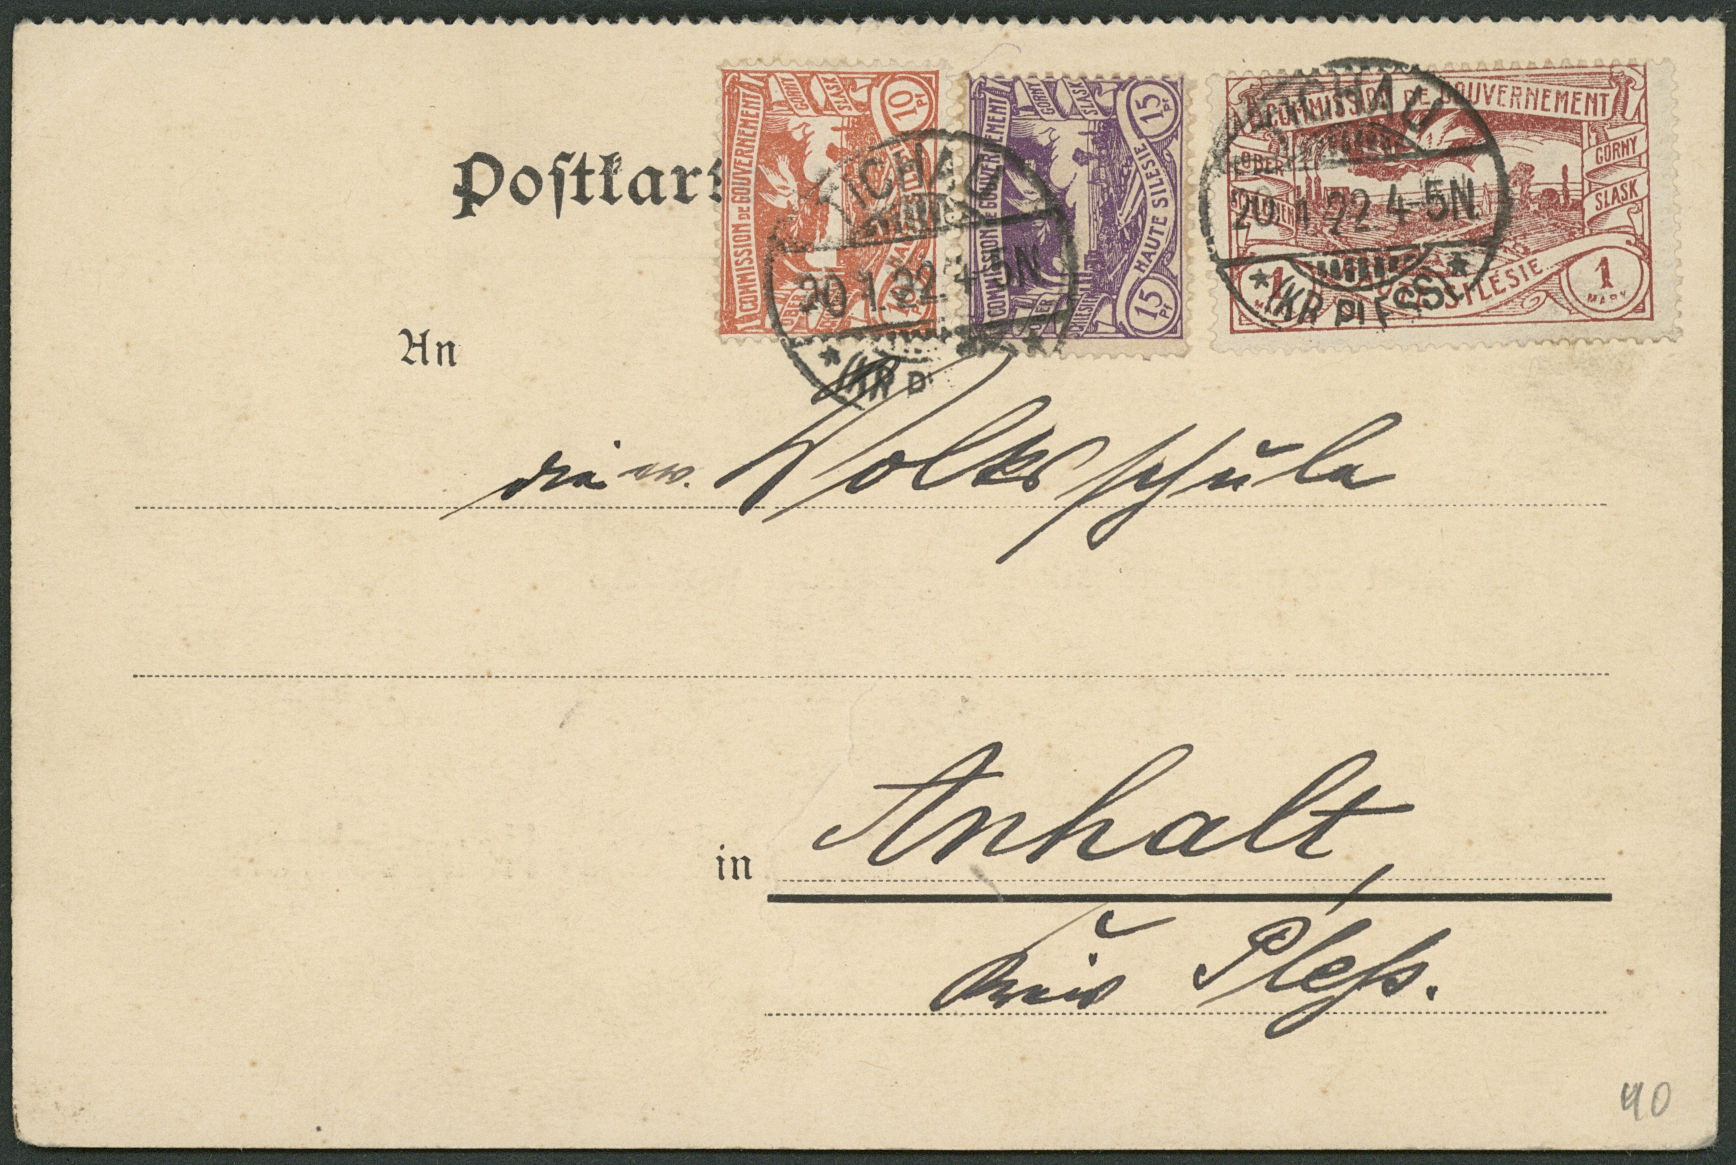 Postkart
An
COMMISSION DE GOUVERNEMENT
GORNY
SLASK
10
Pf
COMMISSION DE GOUVERNEMENT
GORNY
SLASK
15
Pf
HAUTE SILESIE
15
Pf
COMMISSION DE GOUVERNEMENT
OBER
GORNY
SLASK
SILESIE
1
1
MARK
TICHAU
20.1.22.4-5N
*(KR P
TICHAU
20.1.22.4-5N.
*(KR PLESS)*
die ev. Volksschule
in Anhalt,
Kreis Pleß.
40